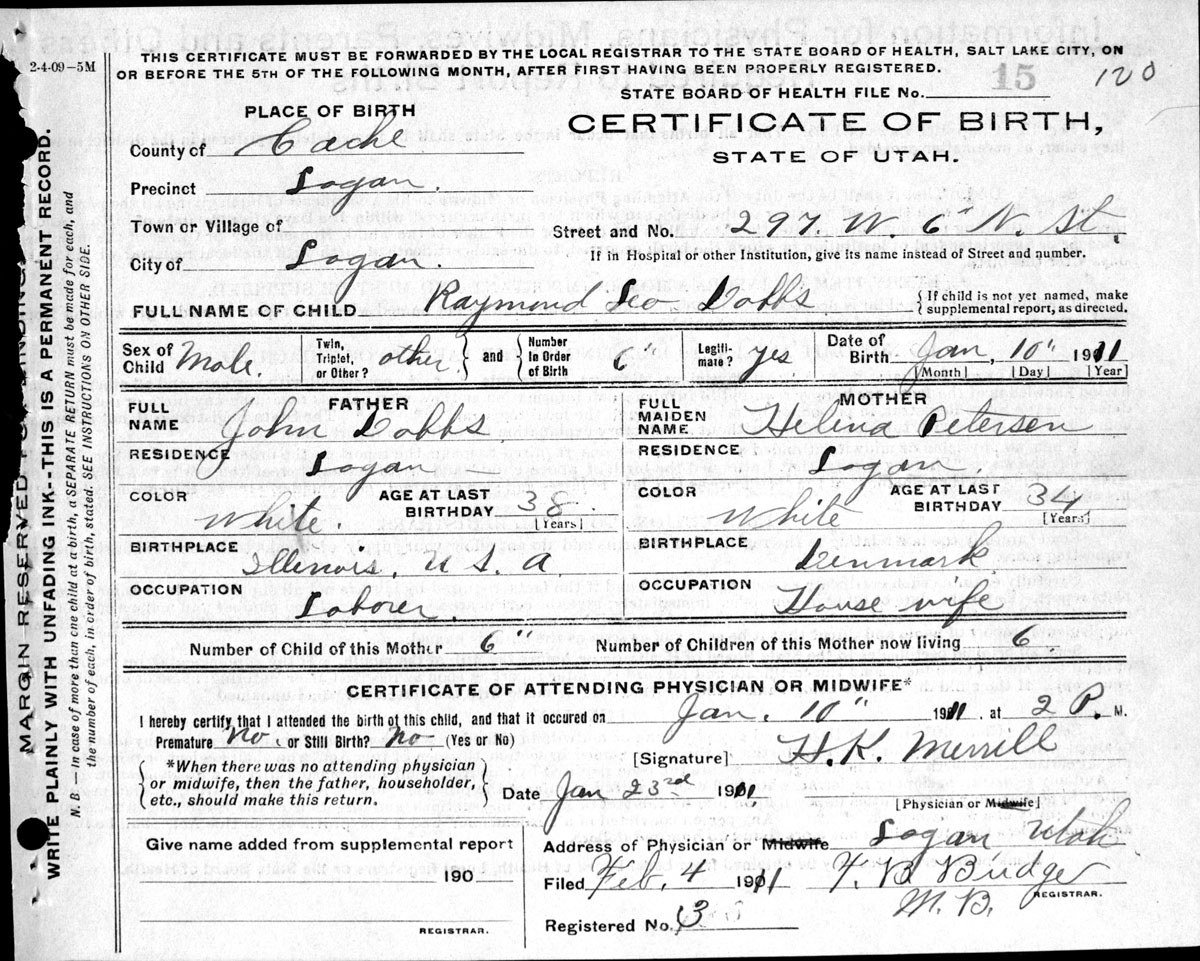 2-4-09—5M
THIS CERTIFICATE MUST BE FORWARDED BY THE LOCAL REGISTRAR TO THE STATE BOARD OF HEALTH, SALT LAKE CITY, ON
OR BEFORE THE 5TH OF THE FOLLOWING MONTH, AFTER FIRST HAVING BEEN PROPERLY REGISTERED.
STATE BOARD OF HEALTH FILE No. 15
120
PLACE OF BIRTH
CERTIFICATE OF BIRTH,
STATE OF UTAH.
County of Cache
Precinct Logan.
Town or Village of
Street and No. 297. W. 6" N. St.
City of Logan.
If in Hospital or other Institution, give its name instead of Street and number.
FULL NAME OF CHILD Raymond Leo Dobbs
{If child is not yet named, make
supplemental report, as directed.
Sex of Child Male.
Twin, Triplet, or Other? other
and
Number in Order of Birth 6"
Legiti-mate? yes
Date of Birth Jan, 10" 1911
(Month) (Day) (Year)
FATHER
FULL NAME John Dobbs
MOTHER
FULL MAIDEN NAME Helena Petersen
RESIDENCE Logan
RESIDENCE Logan.
COLOR White. AGE AT LAST BIRTHDAY 38. (Years)
COLOR White AGE AT LAST BIRTHDAY 34 (Years)
BIRTHPLACE Illinois, U S. A
BIRTHPLACE Denmark
OCCUPATION Laborer.
OCCUPATION House wife
Number of Child of this Mother 6" Number of Children of this Mother now living 6
CERTIFICATE OF ATTENDING PHYSICIAN OR MIDWIFE*
I hereby certify that I attended the birth of this child, and that it occured on Jan. 10" 1911. at 2 P. M.
Premature No. or Still Birth? No (Yes or No)
[Signature] H. K. Merrill
*When there was no attending physician
or midwife, then the father, householder,
etc., should make this return.
Date Jan 23rd 1911.
[Physician or Midwife]
Give name added from supplemental report
190
REGISTRAR.
Address of Physician or Midwife Logan Utah
Filed Feb. 4 1911 F. B Bridge
M. B. REGISTRAR.
Registered No. 3
MARGIN RESERVED FOR BINDING.
WRITE PLAINLY WITH UNFADING INK--THIS IS A PERMANENT RECORD.
N. B — In case of more than one child at a birth, a SEPARATE RETURN must be made for each, and
the number of each, in order of birth, stated. SEE INSTRUCTIONS ON OTHER SIDE.